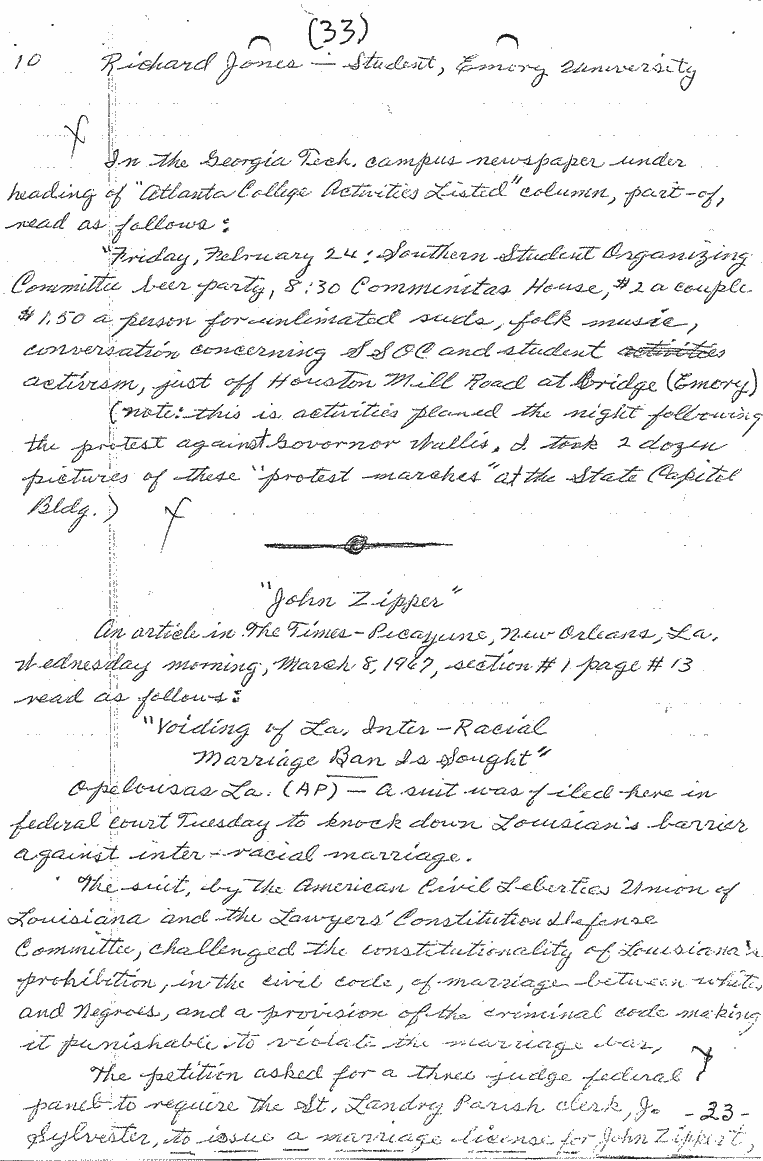 (33)
10 Richard Jones — Student, Emory University
In the Georgia Tech. campus newspaper under
heading of "Atlanta College Activities Listed" column, part-of,
read as follows:
"Friday, February 24: Southern Student Organizing
Committe beer party, 8:30 Comminitas House, #2 a couple
#1.50 a person for unlimated suds, folk music,
conversation concerning SSOC and student activities
activism, just off Houston Mill Road at bridge (Emory)
(note: this is activities planed the night following
the protest against Governor Wallis. I took 2 dozen
pictures of these "protest marches" at the State Capitol
Bldg.)
"John Zipper"
An article in The Times-Picayune, New Orleans, La.
Wednesday morning, March 8, 1967, section #1 page #13
read as follows:
"Voiding of La. Inter-Racial
Marriage Ban Is Sought"
Opelousas La. (AP) — A suit was filed here in
federal court Tuesday to knock down Louisian's barrier
against inter-racial marriage.
The suit, by the American Civil Leberties Union of
Louisiana and the Lawyers' Constitution Defense
Committee, challenged the constitutionality of Louisiana's
prohibition, in the civil code, of marriage between whites
and Negroes, and a provision of the criminal code making
it punishable to violate the marriage bar,
The petition asked for a three judge federal
panel to require the St. Landry Parish clerk, J. -33-
Sylvester, to issue a marriage license for John Zippert,